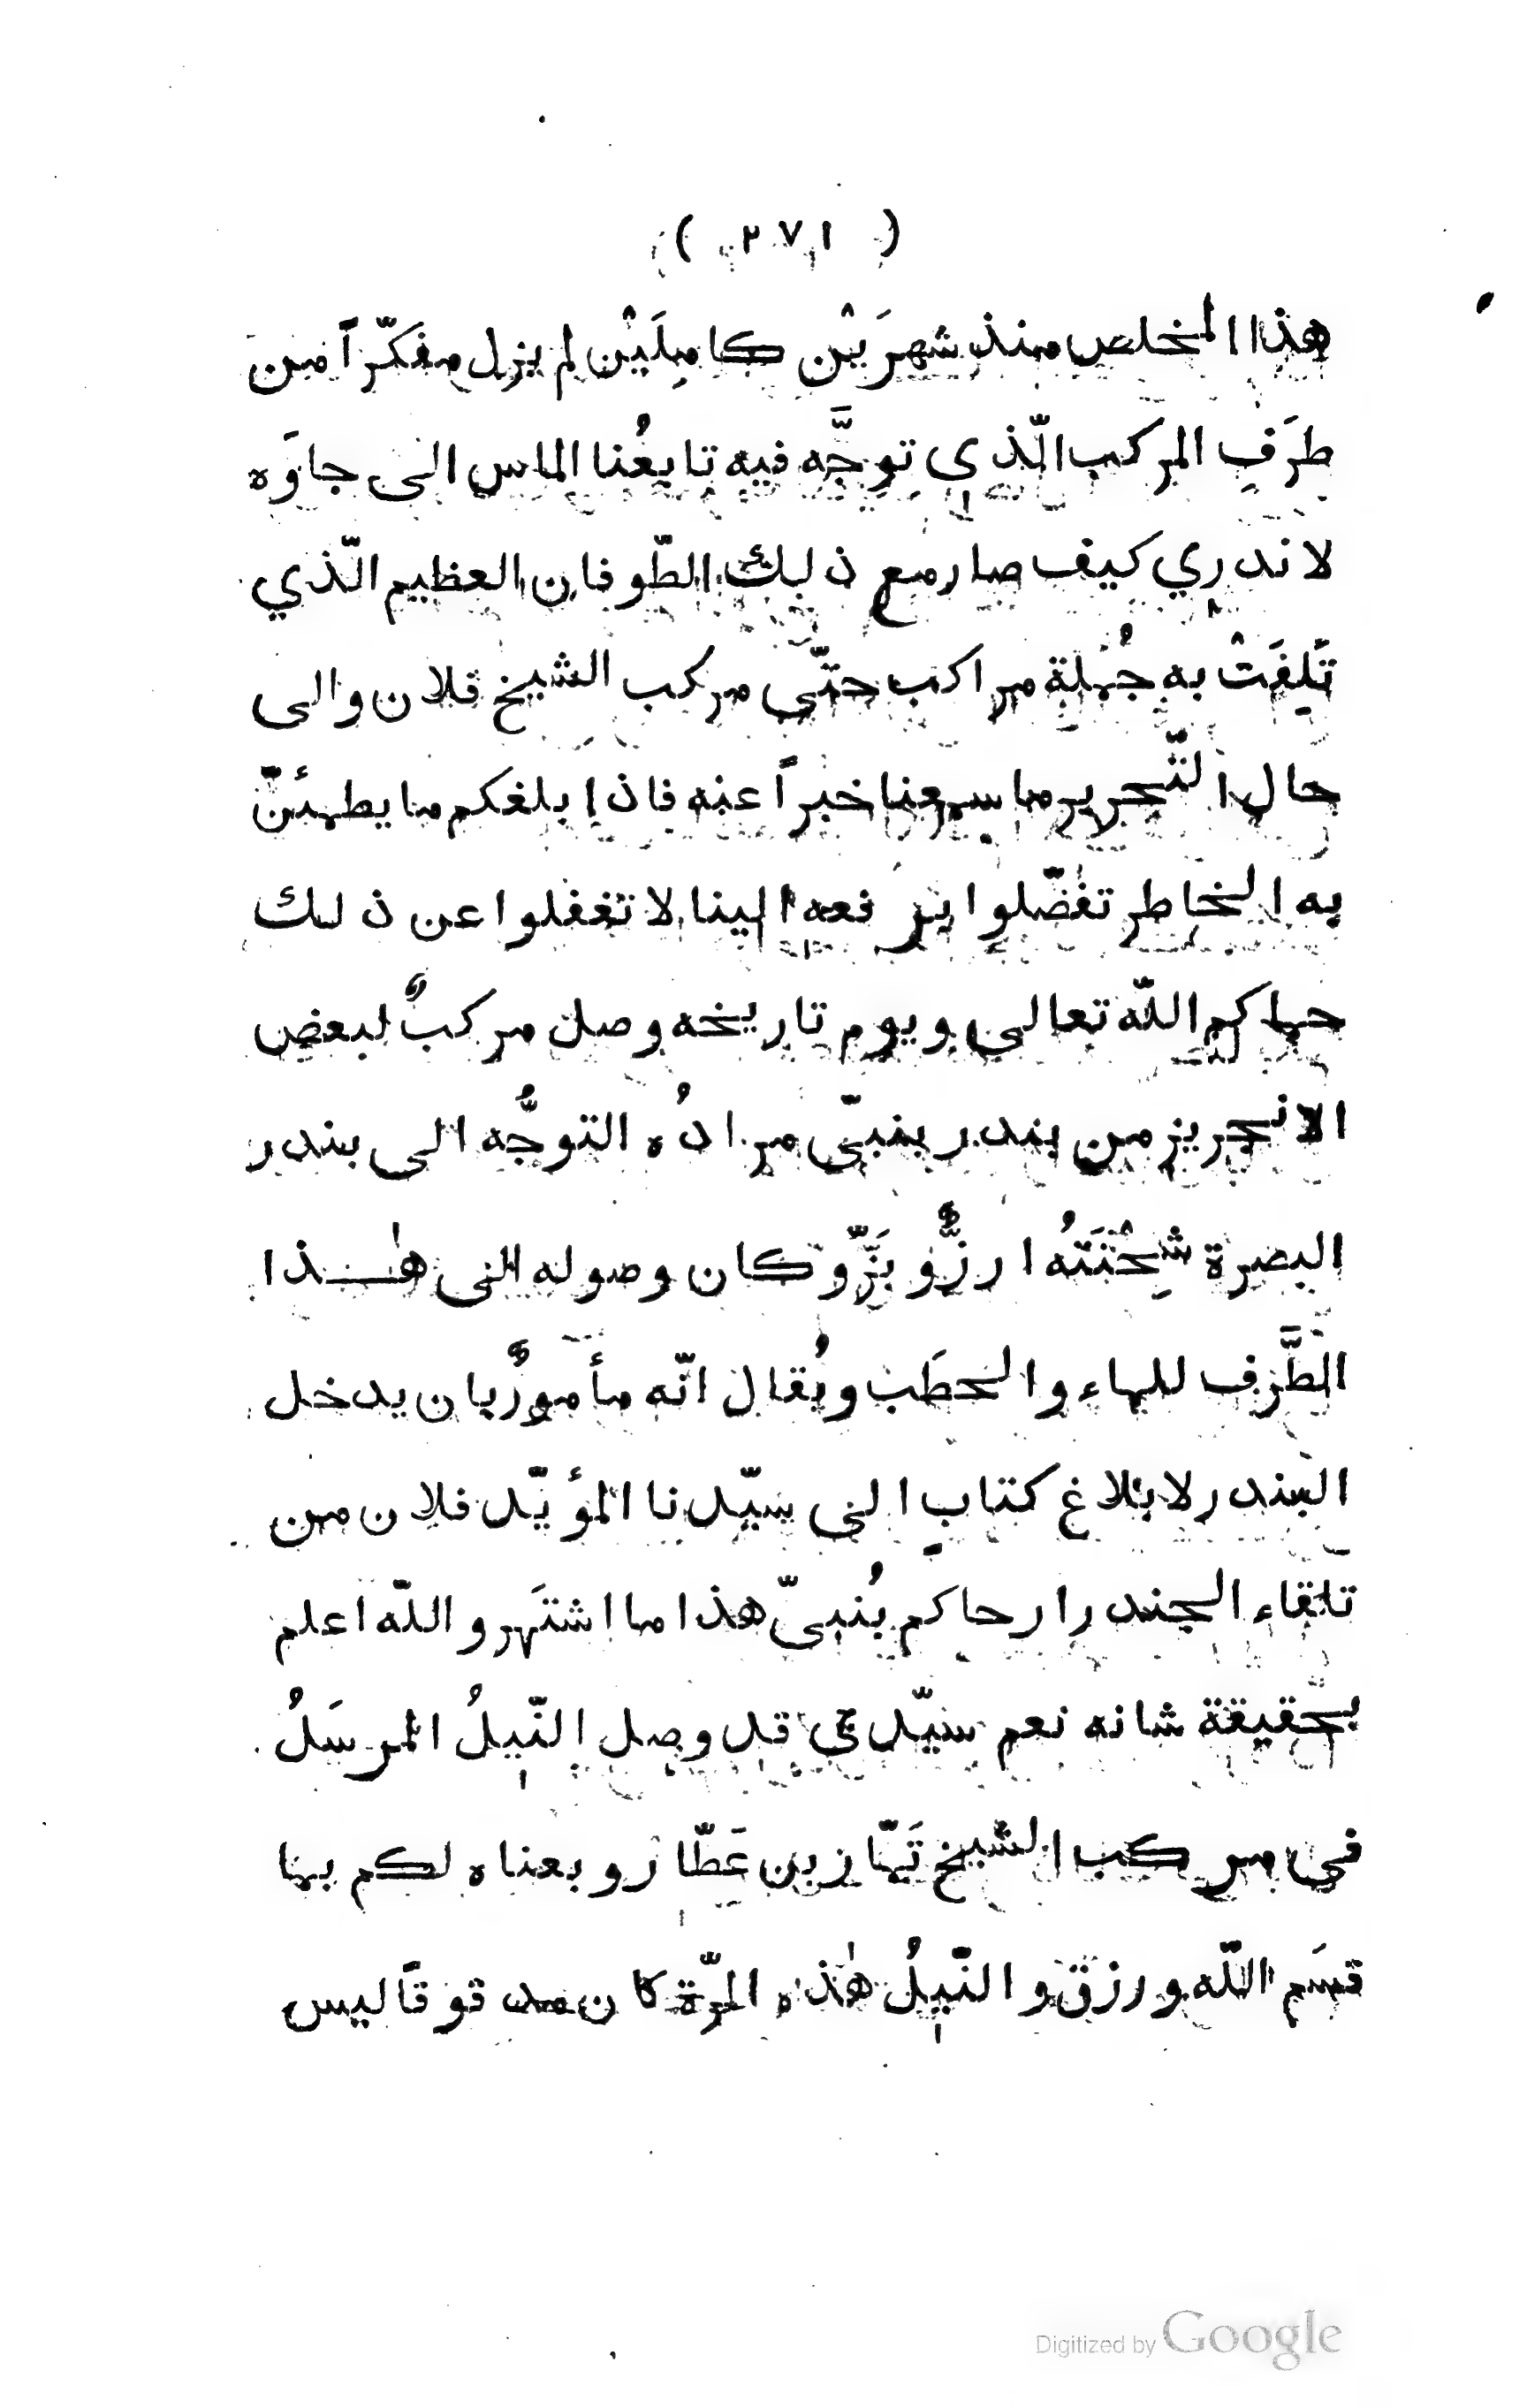 ( ٢٧١ )
هذا المخلص منذ شهرَيْن كامِلَيْن لم يزل مفكّراً من
طرَفِ المركب الّذي توجَّه فيه تابعُنا الماس الى جاوَه
لا ندري كيف صار مع ذلك الطّوفان العظيم الّذي
تَلِفَتْ به جُملة مراكب حتّى مركب الشيخ فلان والى
حال التّحرير ما سمعنا خبراً عنه فاذا بلغكم ما يطمئنّ
به الخاطر تفضّلوا برفعه الينا لا تغفلوا عن ذلك
حماكم اللّه تعالى ويوم تاريخه وصل مركبٌ لبعض
الانجريز من بندر بنبىّ مرادُه التوجُّه الى بندر
البصرة شِحْنَتُه ارزٌّ وبَزّ وكان وصوله الى هٰذا
الطَّرف للماء والحطَب ويُقال انّه مأمورٌ بان يدخل
البندر لابلاغ كتابٍ الى سيّدنا المؤيّد فلان من
تلقاء الجندرار حاكم بُنبىّ هذا ما اشتَهر واللّه اعلم
بحقيقة شانه نعم سيّدي قد وصل النّيلُ المرسَلُ
في مركب الشيخ تَمّاز بن عَطّار وبعناه لكم بما
قسَم اللّه ورزق والنّيلُ هٰذه المرّة كان مدقوقاً ليس
Digitized by Google